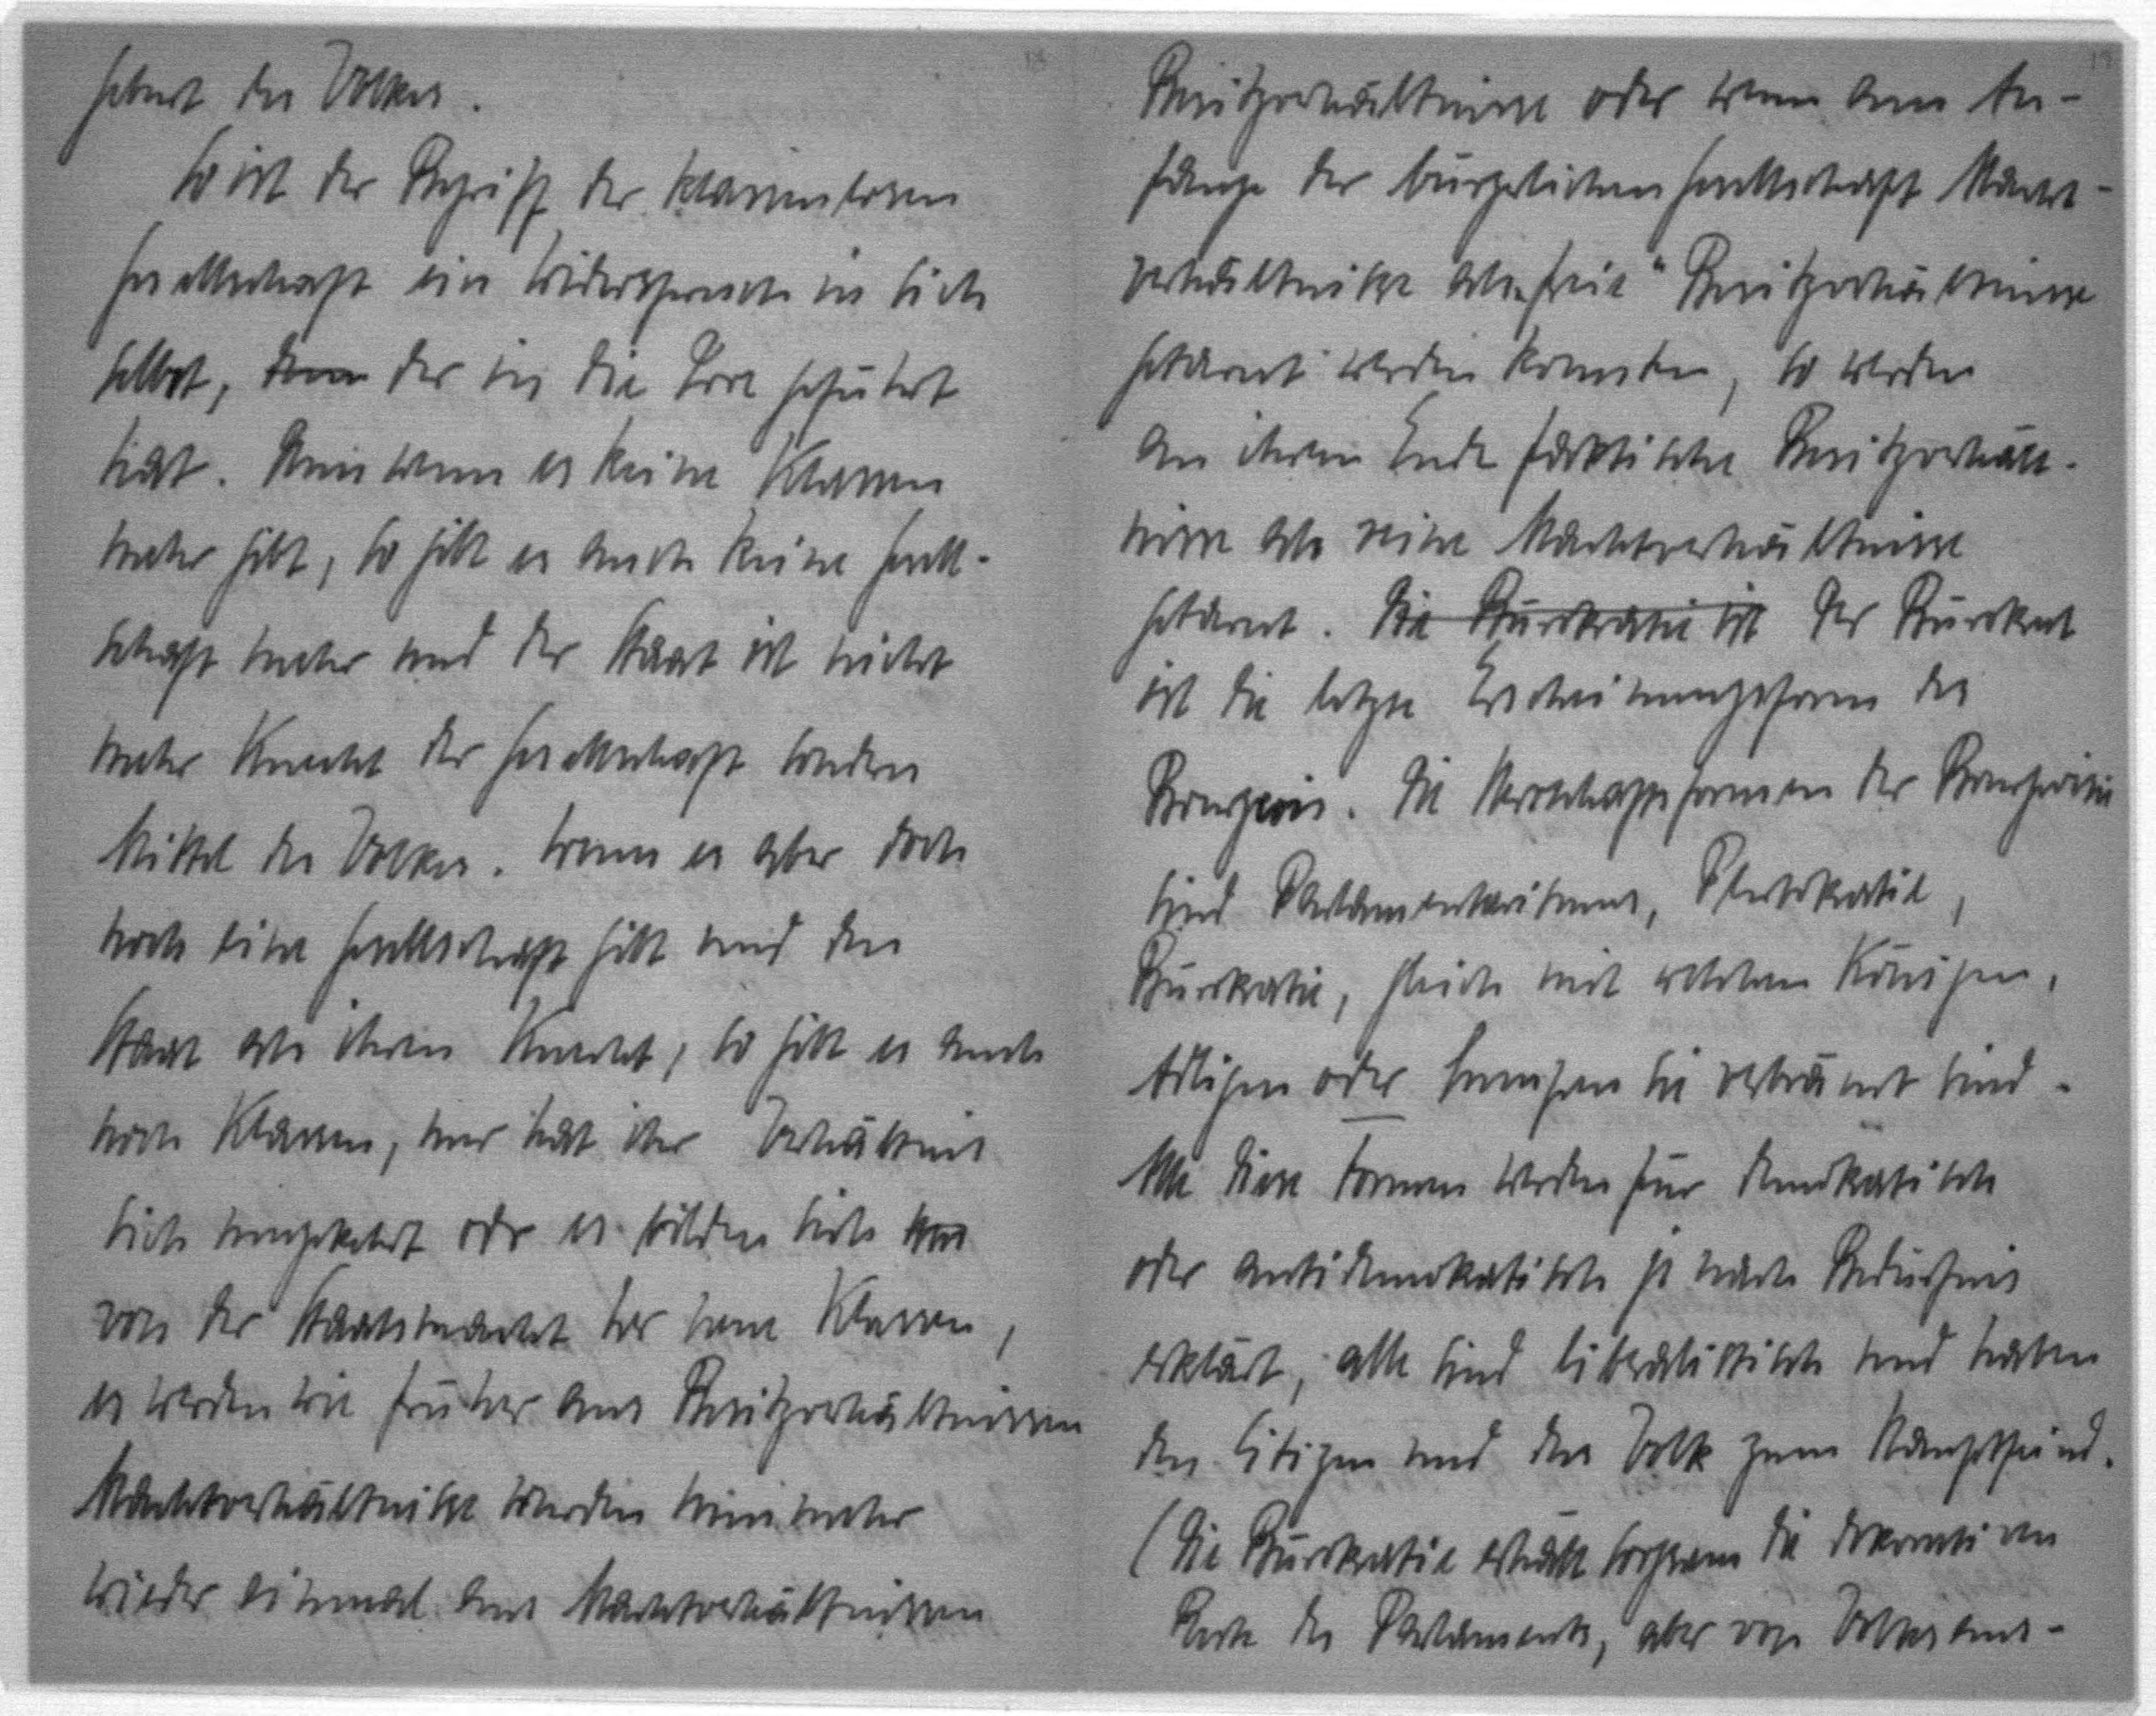 Geburt des Volkes.
So ist der Begriff der klassenlosen
Gesellschaft ein Widerspruch in sich
selbst, denn der in die Irre geführt
hat. Denn wenn es keine Klassen
mehr gibt, so gibt es auch keine Gesell-
schaft mehr und der Staat ist nicht
mehr Knecht der Gesellschaft sondern
Mittel des Volkes. Wenn es aber doch
noch eine Gesellschaft gibt und den
Staat als ihren Knecht, so gibt es auch
noch Klassen, nur hat ihr Verhältnis
sich umgekehrt oder es bilden sich
von der Staatsmacht her neue Klassen,
es werden wie früher aus Besitzverhältnissen
Machtverhältnisse wurden nunmehr
wieder einmal aus Machtverhältnissen
Besitzverhältnisse oder wenn am An-
fange der bürgerlichen Gesellschaft Macht-
verhältnisse als „freie“ Besitzverhältnisse
getarnt werden konnten, so werden
an ihrem Ende faktische Besitzverhält-
nisse als reine Machtverhältnisse
getarnt. Die Bürokratie ist Der Bürokrat
ist die letzte Erscheinungsform des
Bourgeois. Die Herrschaftsformen der Bourgeoisie
sind Parlamentarismus, Plutokratie,
Bürokratie, gleich mit welchen Königen,
Adligen oder sie verbrämt sind.
Alle diese Formen werden für demokratisch
oder antidemokratisch je nach Bedürfnis
erklärt, alle sind liberalistisch und haben
den Citizen und das Volk zum Hauptfeind.
(Die Bürokratie erhält sorgsam die dekorativen
Reste des Parlaments, aber von Volksaus-